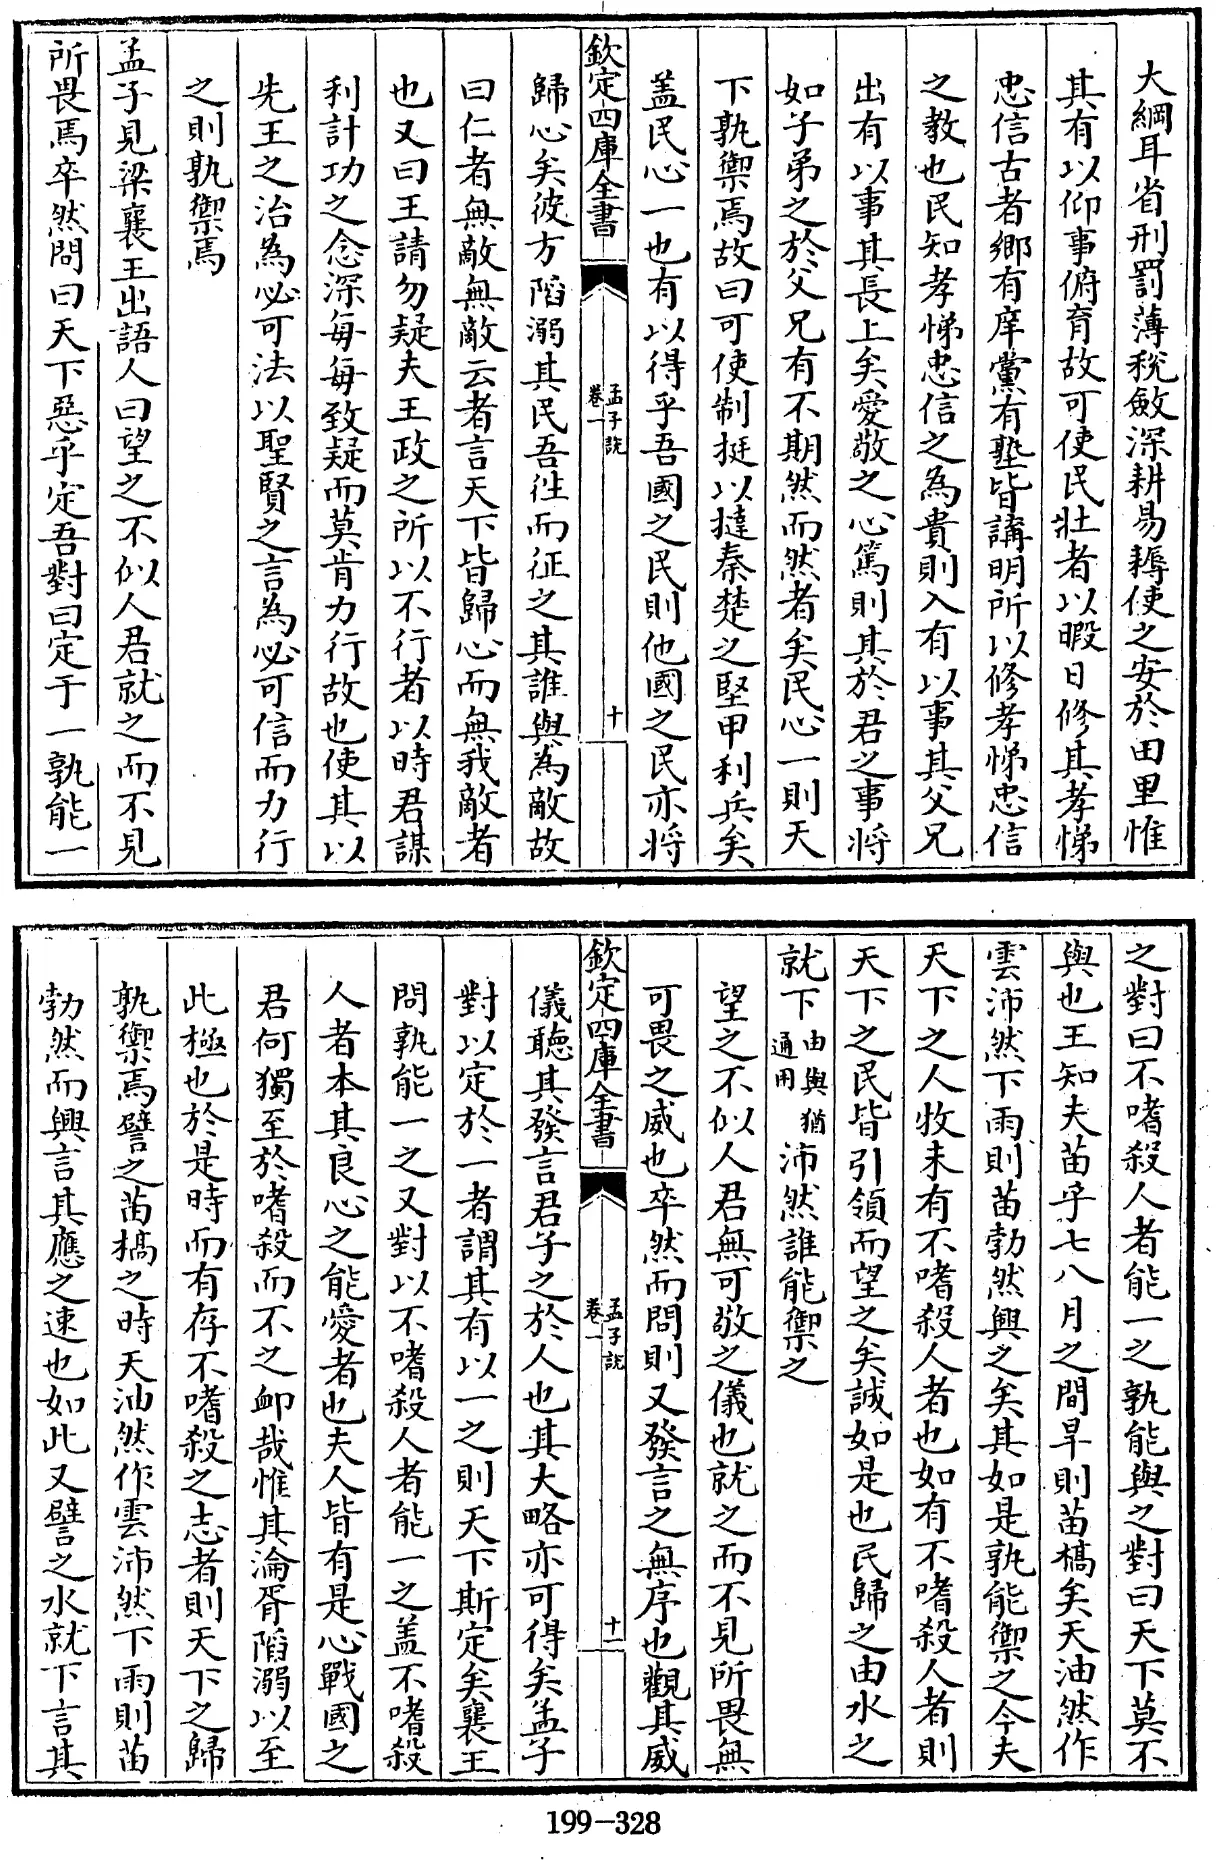 大綱耳省刑罰薄稅斂深耕易耨使之安於田里惟
其有以仰事俯育故可使民壯者以暇日修其孝悌
忠信古者鄉有庠黨有塾皆講明所以修孝悌忠信
之教也民知孝悌忠信之為貴則入有以事其父兄
出有以事其長上矣愛敬之心篤則其於君之事將
如子弟之於父兄有不期然而然者矣民心一則天
下孰禦焉故曰可使制挺以撻秦楚之堅甲利兵矣
蓋民心一也有以得乎吾國之民則他國之民亦將
欽定四庫全書
孟子說
卷一
十
歸心矣彼方陷溺其民吾徃而征之其誰與為敵故
曰仁者無敵無敵云者言天下皆歸心而無我敵者
也又曰王請勿疑夫王政之所以不行者以時君謀
利計功之念深每每致疑而莫肯力行故也使其以
先王之治為必可法以聖賢之言為必可信而力行
之則孰禦焉
孟子見梁襄王出語人曰望之不似人君就之而不見
所畏焉卒然問曰天下惡乎定吾對曰定于一孰能一
之對曰不嗜殺人者能一之孰能與之對曰天下莫不
與也王知夫苗乎七八月之間旱則苗槁矣天油然作
雲沛然下雨則苗勃然興之矣其如是孰能禦之今夫
天下之人牧未有不嗜殺人者也如有不嗜殺人者則
天下之民皆引領而望之矣誠如是也民歸之由水之
就下由與猶通用沛然誰能禦之
望之不似人君無可敬之儀也就之而不見所畏無
可畏之威也卒然而問則又發言之無序也觀其威
欽定四庫全書
孟子說
卷一
十一
儀聽其發言君子之於人也其大略亦可得矣孟子
對以定於一者謂其有以一之則天下斯定矣襄王
問孰能一之又對以不嗜殺人者能一之蓋不嗜殺
人者本其良心之能愛者也夫人皆有是心戰國之
君何獨至於嗜殺而不之卹哉惟其淪胥陷溺以至
此極也於是時而有存不嗜殺之志者則天下之歸
孰禦焉譬之苗槁之時天油然作雲沛然下雨則苗
勃然而興言其應之速也如此又譬之水就下言其
199-328